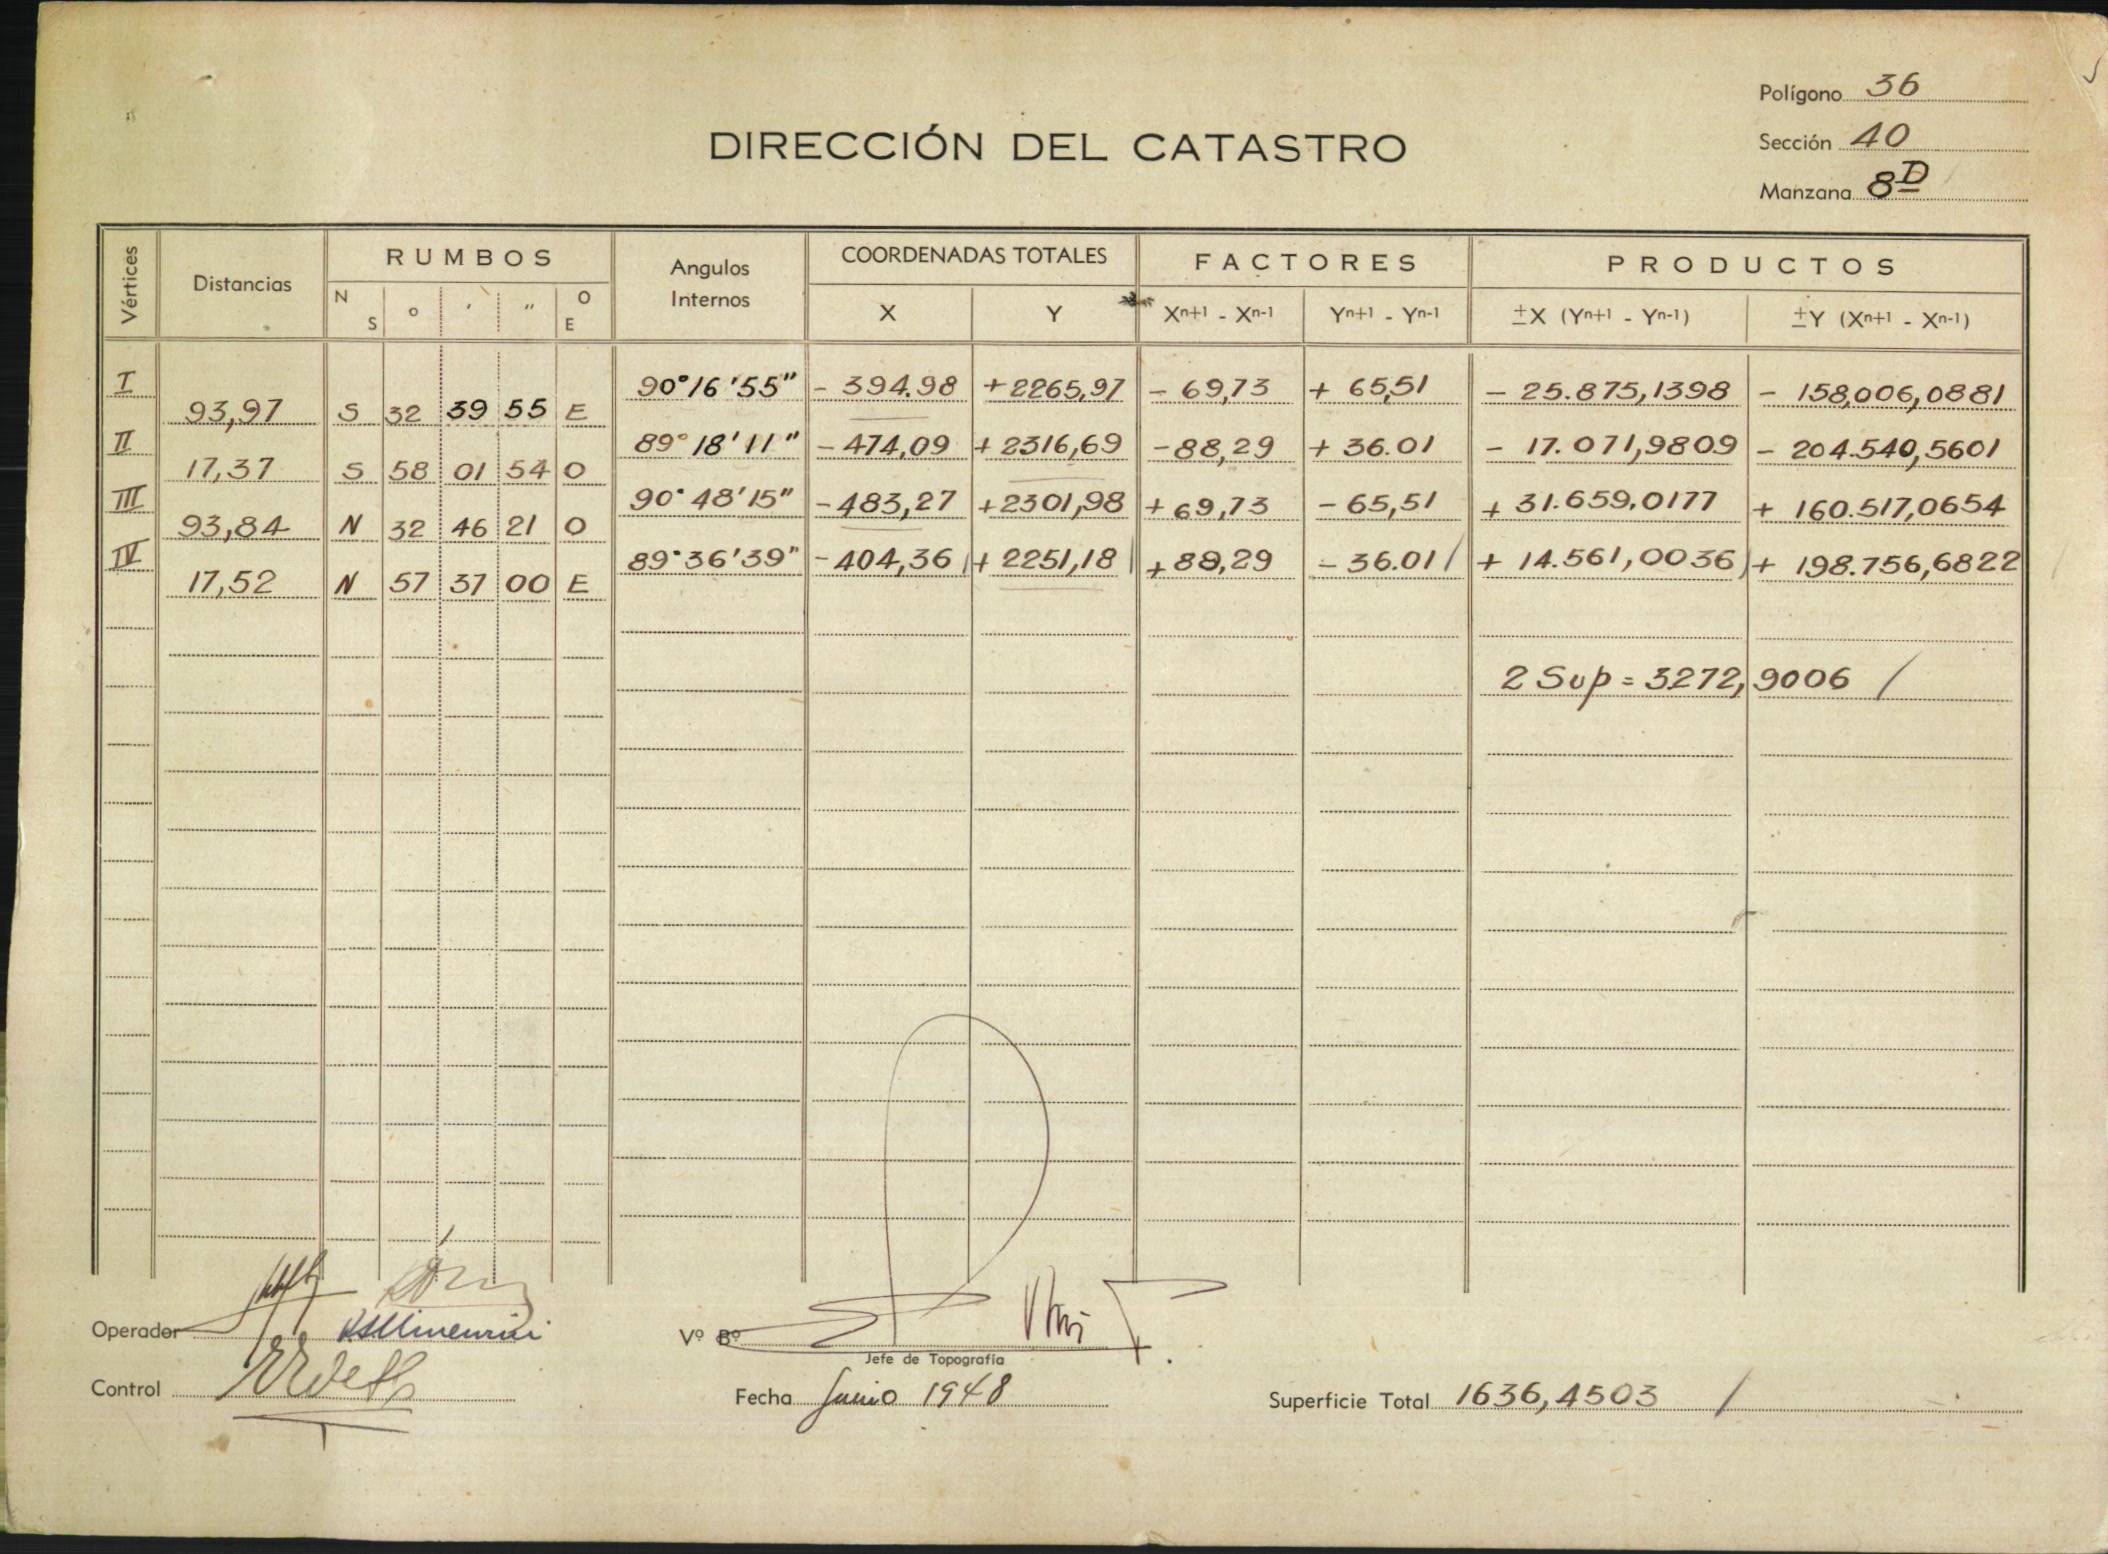 Polígono 36
DIRECCIÓN DEL CATASTRO
Sección 40
Manzana 8D
Vértices Distancias RUMBOS Angulos Internos COORDENADAS TOTALES FACTORES PRODUCTOS
N S ° ' " O E X Y Xn+1 - Xn-1 Yn+1 - Yn-1 ±X (Yn+1 - Yn-1) ±Y (Xn+1 - Xn-1)
I 90°16'55" - 394.98 +2265,97 - 69,73 + 65,51 - 25.875,1398 - 158,006,0881
93,97 S 32 39 55 E
II 89°18'11" - 474,09 + 2316,69 - 88,29 + 36.01 - 17.071,9809 - 204.540,5601
17,37 S 58 01 54 O
III 90°48'15" - 483,27 + 2301,98 + 69,73 - 65,51 + 31.659.0177 + 160.517,0654
93,84 N 32 46 21 O
IV 89°36'39" - 404,36 + 2251,18 + 88,29 - 36.01 + 14.561,0036 + 198.756,6822
17,52 N 57 37 00 E
2 Sup = 3272,9006
Operador
Vº Bº
Jefe de Topografía
Control
Fecha Junio 1948
Superficie Total 1636,4503